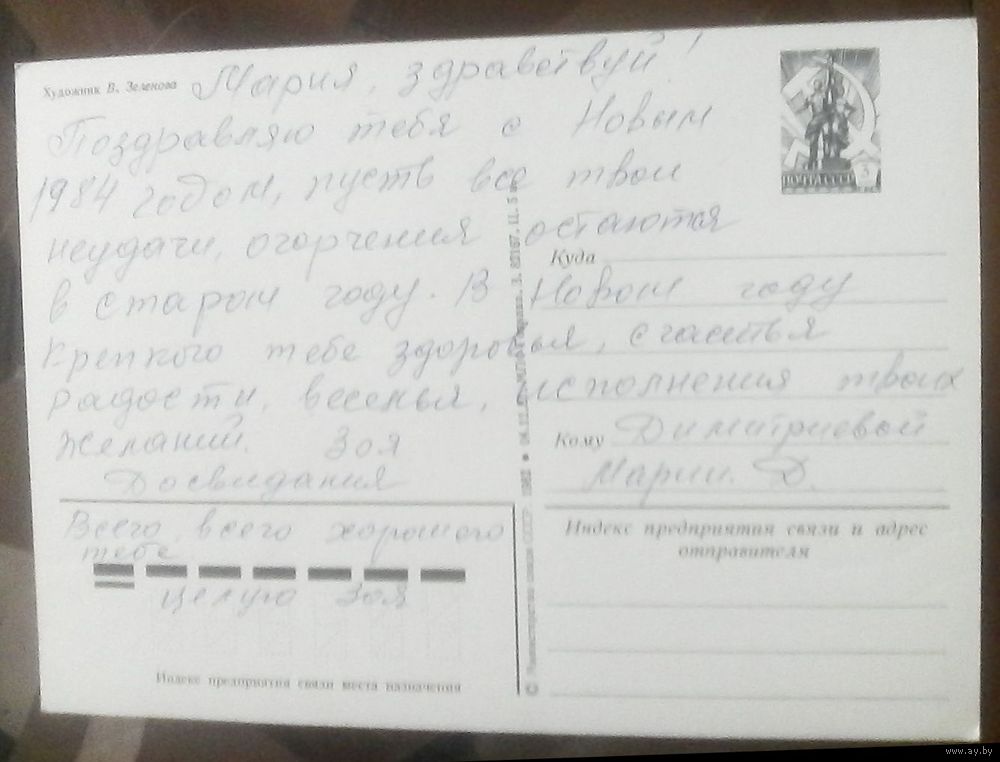 Художник В. Зеленова
Мария, здравствуй!
Поздравляю тебя с Новым
1984 годом, пусть все твои
неудачи, огорчения остаются
в старом году. В Новом году
крепкого тебе здоровья, счастья
радости, веселья, исполнения твоих
желаний. Зоя
Досвидания
Всего, всего хорошего
тебе
целую Зоя
Индекс предприятия связи места назначения
© Министерство связи СССР. 1982
ПОЧТА СССР 3
Куда
Кому Димитриевой
Марии. Д.
Индекс предприятия связи и адрес
отправителя
www.ay.by